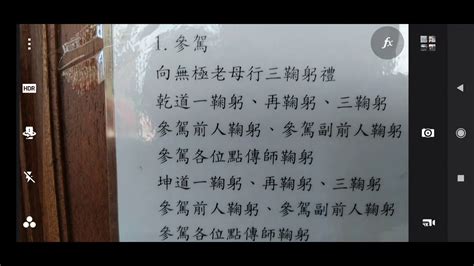 1. 參駕
向無極老母行三鞠躬禮
乾道一鞠躬、再鞠躬、三鞠躬
參駕前人鞠躬、參駕副前人鞠躬
參駕各位點傳師鞠躬
坤道一鞠躬、再鞠躬、三鞠躬
參駕前人鞠躬、參駕副前人鞠躬
參駕各位點傳師鞠躬
HDR
fx